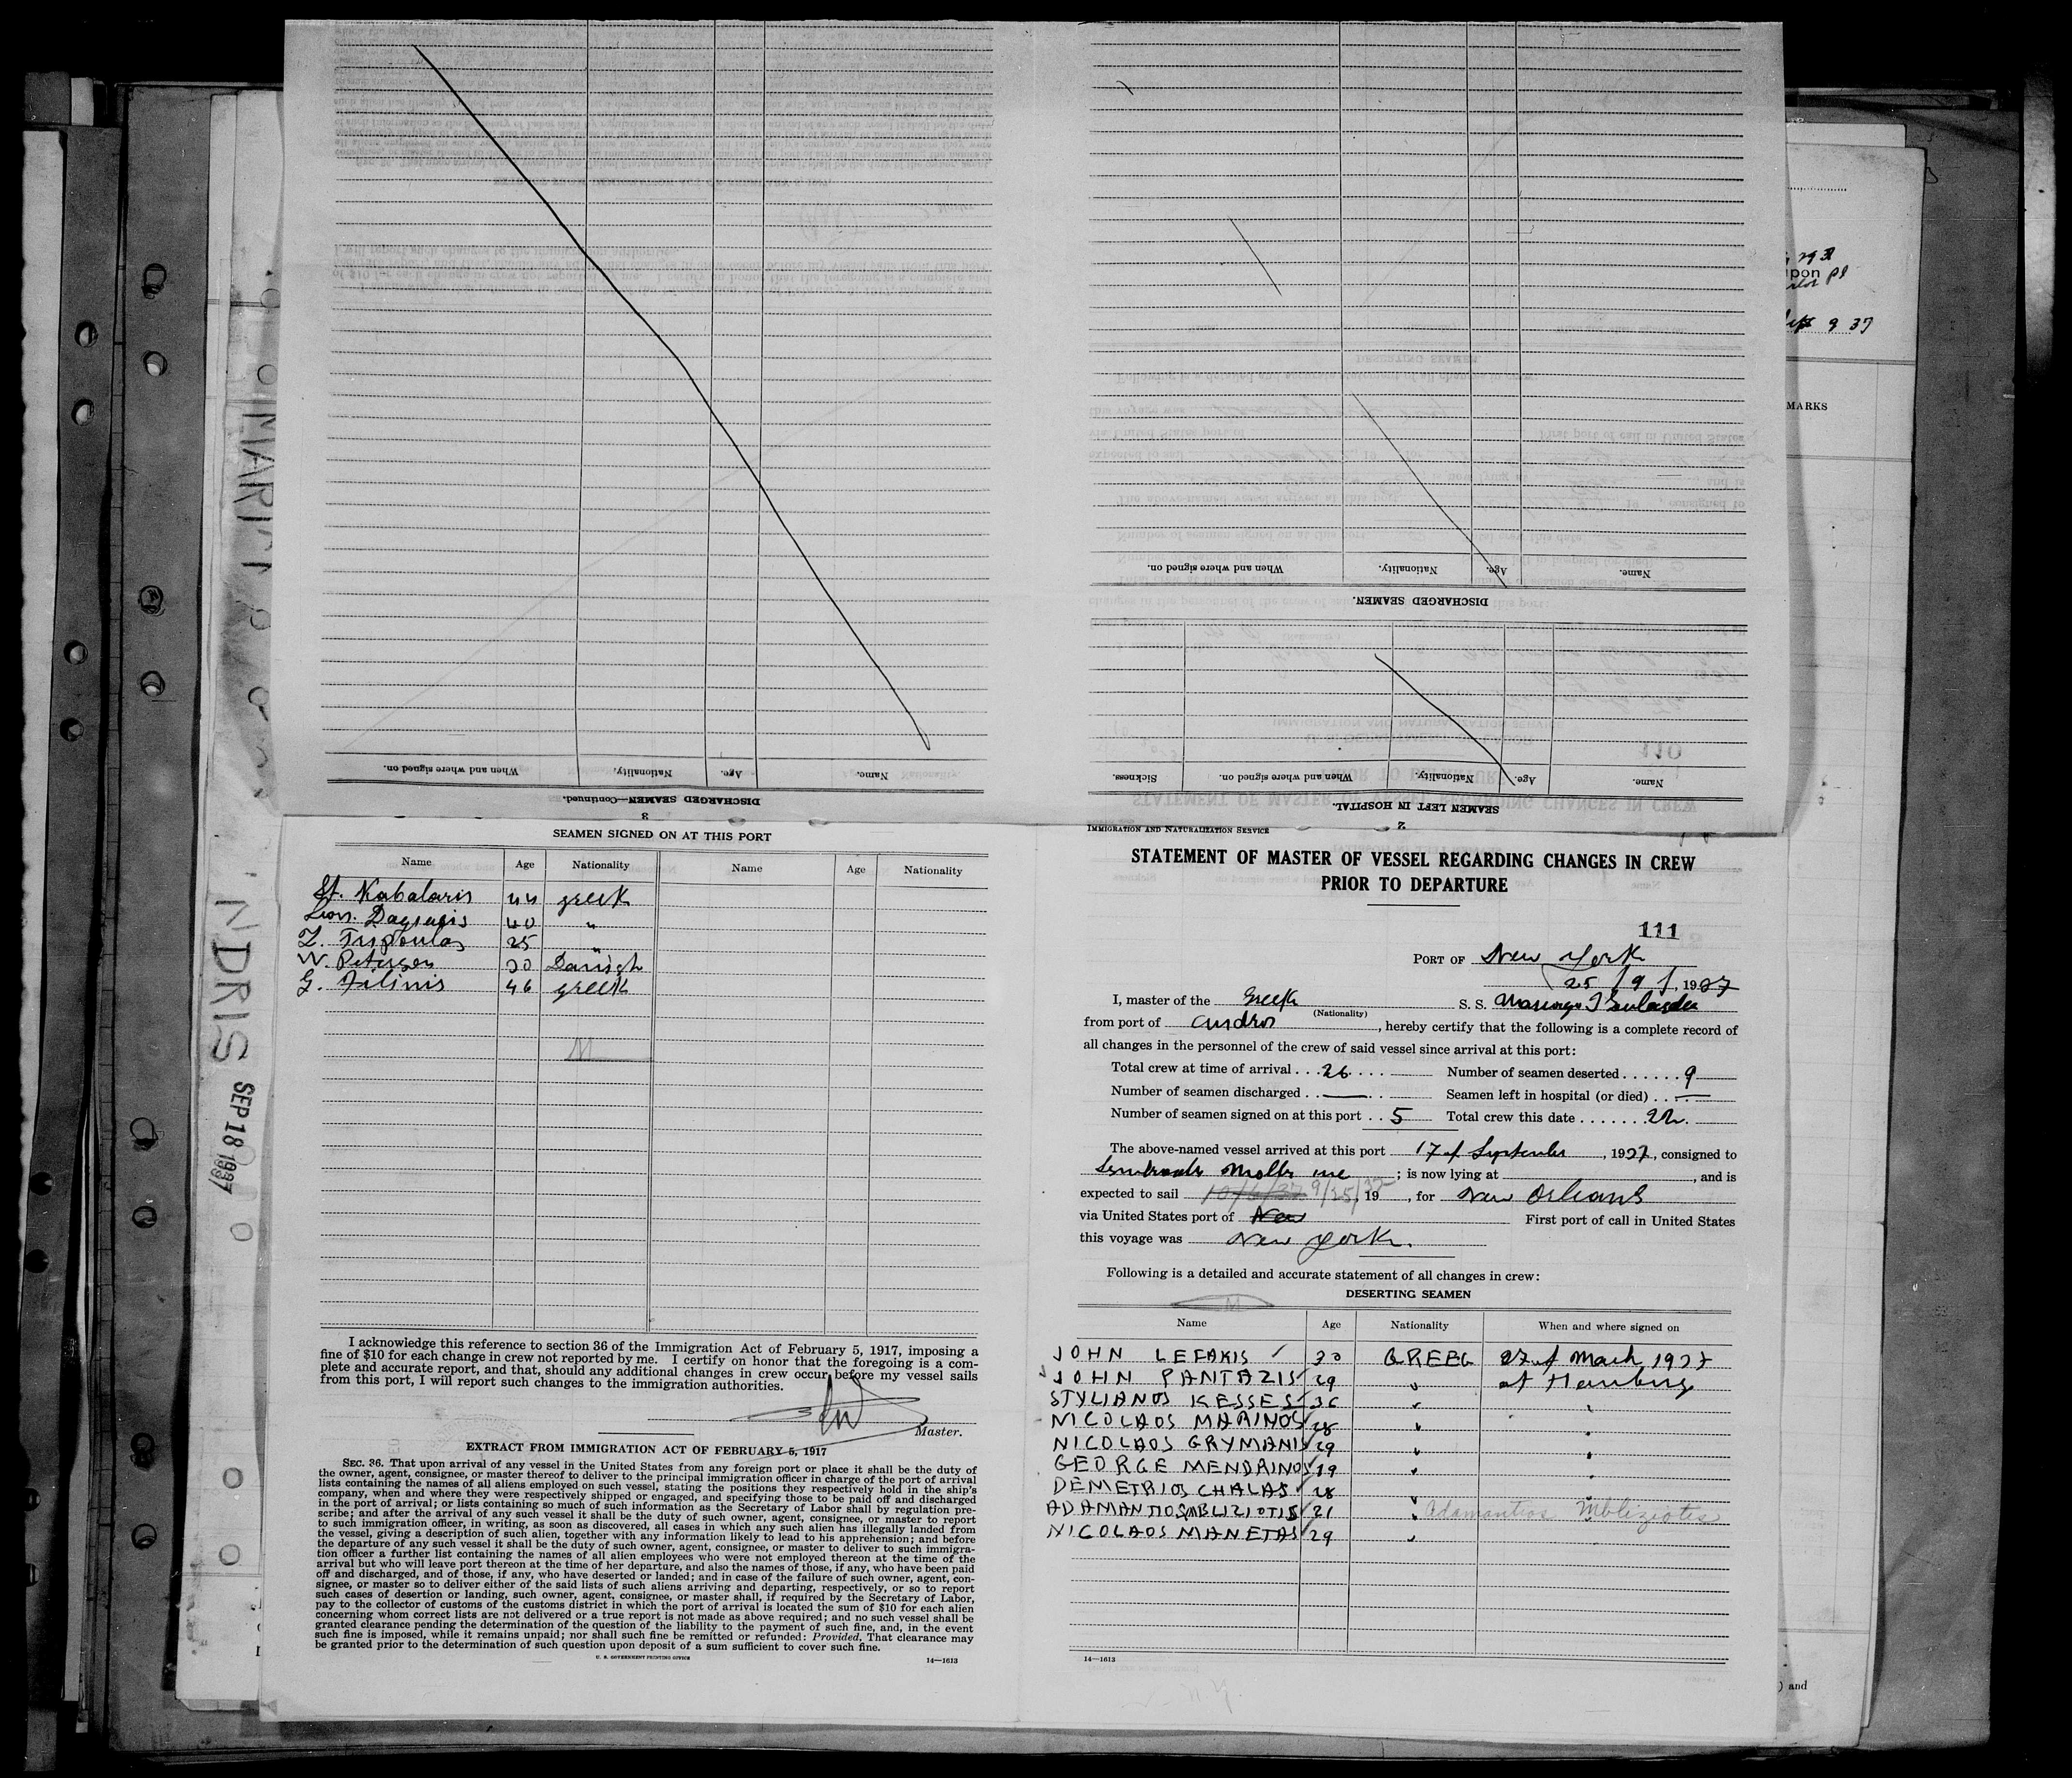 DISCHARGED SEAMEN—Continued.
Name. Age. Nationality. When and where signed on.
3
DISCHARGED SEAMEN.
Name. Age. Nationality. When and where signed on.
SEAMEN LEFT IN HOSPITAL.
Name. Age. Nationality. When and where signed on. Sickness.
2
SEAMEN SIGNED ON AT THIS PORT
Name Age Nationality Name Age Nationality
St. Kabalaris 44 greek
40 "
25 "
W. Petersen 30 Danish
G. Filinis 46 greek
M
I acknowledge this reference to section 36 of the Immigration Act of February 5, 1917, imposing a
fine of $10 for each change in crew not reported by me. I certify on honor that the foregoing is a com-
plete and accurate report, and that, should any additional changes in crew occur before my vessel sails
from this port, I will report such changes to the immigration authorities.
Master.
EXTRACT FROM IMMIGRATION ACT OF FEBRUARY 5, 1917
SEC. 36. That upon arrival of any vessel in the United States from any foreign port or place it shall be the duty of
the owner, agent, consignee, or master thereof to deliver to the principal immigration officer in charge of the port of arrival
lists containing the names of all aliens employed on such vessel, stating the positions they respectively hold in the ship's
company, when and where they were respectively shipped or engaged, and specifying those to be paid off and discharged
in the port of arrival; or lists containing so much of such information as the Secretary of Labor shall by regulation pre-
scribe; and after the arrival of any such vessel it shall be the duty of such owner, agent, consignee, or master to report
to such immigration officer, in writing, as soon as discovered, all cases in which any such alien has illegally landed from
the vessel, giving a description of such alien, together with any information likely to lead to his apprehension; and before
the departure of any such vessel it shall be the duty of such owner, agent, consignee, or master to deliver to such immigra-
tion officer a further list containing the names of all alien employees who were not employed thereon at the time of the
arrival but who will leave port thereon at the time of her departure, and also the names of those, if any, who have been paid
off and discharged, and of those, if any, who have deserted or landed; and in case of the failure of such owner, agent, con-
signee, or master so to deliver either of the said lists of such aliens arriving and departing, respectively, or so to report
such cases of desertion or landing, such owner, agent, consignee, or master shall, if required by the Secretary of Labor,
pay to the collector of customs of the customs district in which the port of arrival is located the sum of $10 for each alien
concerning whom correct lists are not delivered or a true report is not made as above required; and no such vessel shall be
granted clearance pending the determination of the question of the liability to the payment of such fine, and, in the event
such fine is imposed, while it remains unpaid; nor shall such fine be remitted or refunded: Provided, That clearance may
be granted prior to the determination of such question upon deposit of a sum sufficient to cover such fine.
U. S. GOVERNMENT PRINTING OFFICE 14—1613
IMMIGRATION AND NATURALIZATION SERVICE
STATEMENT OF MASTER OF VESSEL REGARDING CHANGES IN CREW
PRIOR TO DEPARTURE
111
PORT OF New York
25/9/, 1937
I, master of the Greek S. S.
(Nationality)
from port of Andros, hereby certify that the following is a complete record of
all changes in the personnel of the crew of said vessel since arrival at this port:
Total crew at time of arrival ...26.... Number of seamen deserted ......9
Number of seamen discharged ..—.. Seamen left in hospital (or died) ..—
Number of seamen signed on at this port ..5 Total crew this date .......22.
The above-named vessel arrived at this port 17 of September, 1937, consigned to
; is now lying at , and is
expected to sail 10/6/37 9/25/37, 19 , for New Orleans
via United States port of New First port of call in United States
this voyage was New York.
Following is a detailed and accurate statement of all changes in crew:
DESERTING SEAMEN
M
Name Age Nationality When and where signed on
JOHN LEFAKIS 30 GREEC 27 of March 1937
JOHN PANTAZIS 29 " at Hamburg
STYLIANOS KESSES 36 " "
NICOLAOS MARINOS 28 " "
NICOLAOS GRYMANIS 29 " "
GEORGE MENDRINOS 19 " "
DEMETRIOS CHALAS 28 " "
ADAMANTIOS MBLIZIOTIS 21 " Adamantios Mbliziotis
NICOLAOS MANETAS 29 " "
14—1613
SEP 18 1937
NDRIS
MARKS
upon
9 37
) and